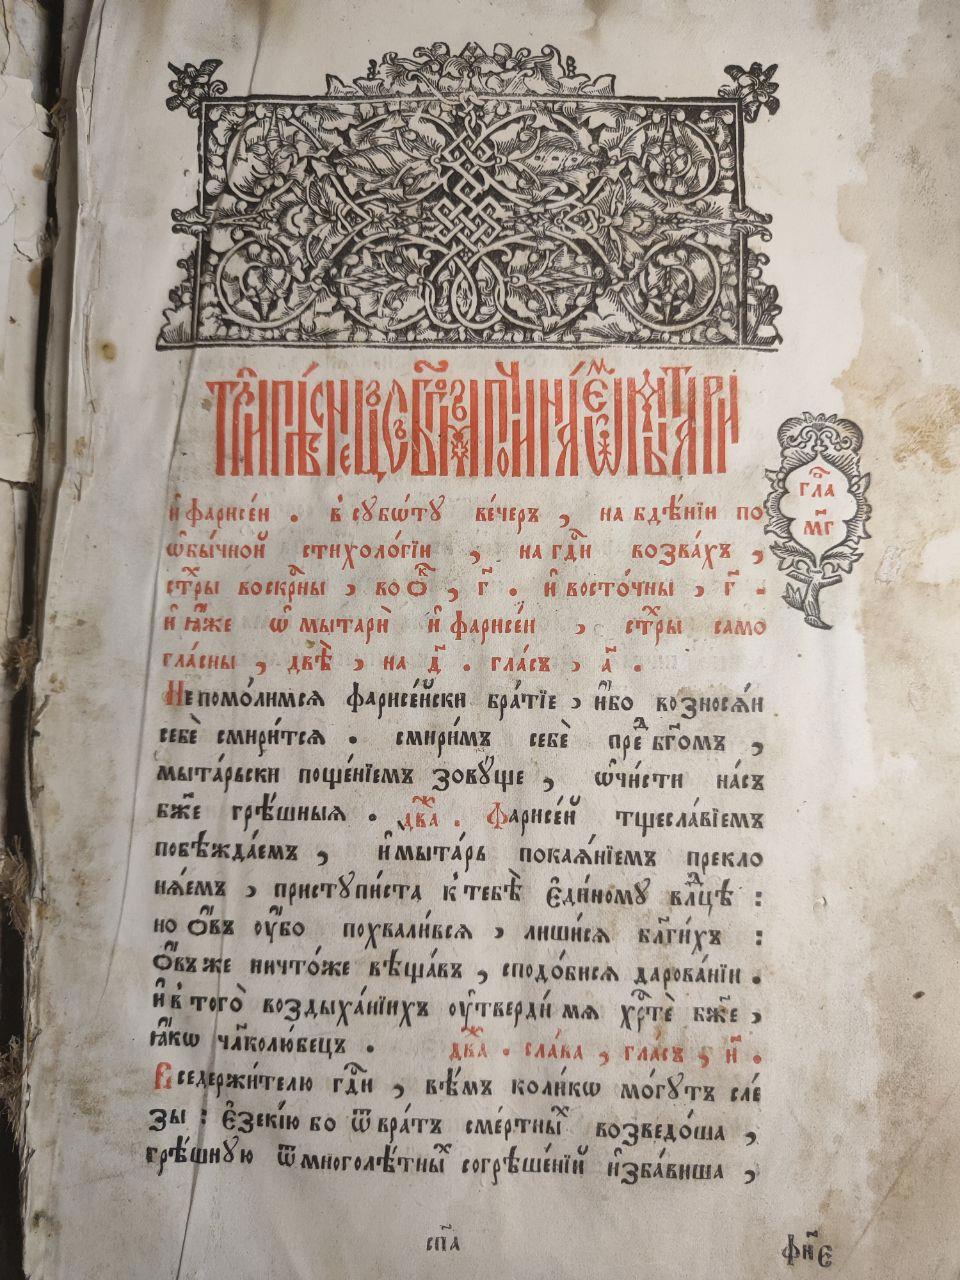 и҆ фарисе́и . в̾ сꙋбѡ́тꙋ ве́черъ , на бдѣ́нїи по
ѡ҆бы́чной стихоло́гїи , на гдⷭ҇и возва́хъ ,
ст꙯ры воскрⷭ҇ны , г҃ . и҆ восто́чны , г҃ -
и҆ ꙗ҆́же ѡ҆ мытарѝ и҆ фарисе́и , ст꙯ры само
гла́сны , двѣ̀ , на д҃ . гла́съ , а҃ .
Не помо́лимсѧ фарисе́йски бра́тїе , и҆́бо возносѧ́и
себѐ смири́тсѧ . смири́мъ себѐ преⷣ бг҃омъ ,
мыта́рьски поще́нїемъ зовꙋ́ще , ѡ҆чи́сти на́съ
бж҃е грѣ́шныѧ . два́жⷣ . Фарисе́й тщесла́вїемъ
побѣжда́емъ , и҆ мыта́рь покаѧ́нїемъ прекло
нѧ́емъ , пристꙋпи́ста к̾ тебѣ̀ є҆ди́номꙋ влⷣцѣ :
но ѻ҆́въ оу҆́бо похвали́всѧ , лиши́сѧ бл҃ги́хъ :
ѻ҆́въ же ничто́же вѣща́въ , сподо́бисѧ дарова́нїи .
и҆ в̾ того̀ воздыха́нїихъ оу҆тверди́ мѧ хрⷭ҇тѐ бж҃е ,
ꙗ҆́кѡ чл҃колю́бецъ . два́жⷣ . сла́ва , гла́съ , и҃ .
Вседержи́телю гдⷭ҇и , вѣ́мъ коли́кѡ мо́гꙋтъ сле́
зы : є҆зекі́ю бо ѿ вра́тъ сме́ртныⷯ возведо́ша ,
грѣ́шнꙋю ѿ многолѣ́тныⷯ согрѣше́нїй и҆зба́виша ,
гла
м҃г
сп҃а